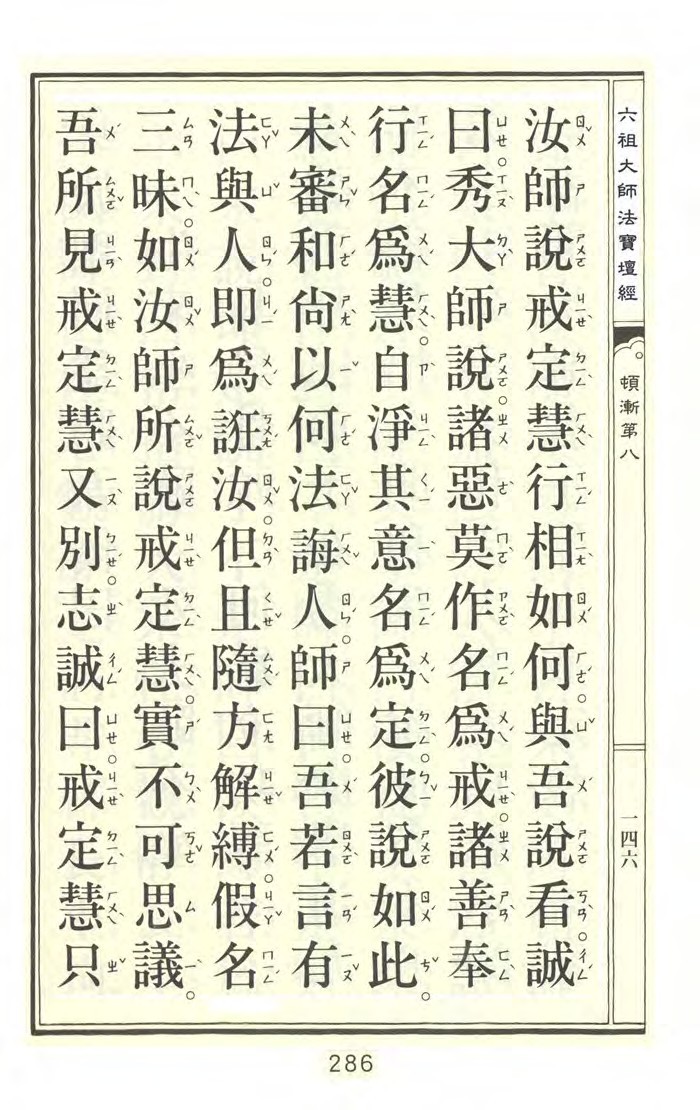 六祖大師法寶壇經
頓漸第八
一四六
汝師說戒定慧行相如何。與吾說看。誠
曰。秀大師說。諸惡莫作名爲戒。諸善奉
行名爲慧。自淨其意名爲定。彼說如此。
未審和尙以何法誨人。師曰。吾若言有
法與人。即爲誑汝。但且隨方解縛。假名
三昧。如汝師所說戒定慧。實不可思議。
吾所見戒定慧又別。志誠曰。戒定慧只
286